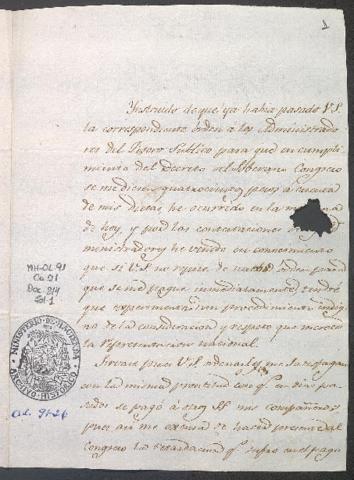 1
Instruido de que ya habia pasado V.S.
la correspondiente orden a los Administrado
res del Tesoro Publico para que en cumpli
miento del Decreto del Soberano Congreso
se me diesen quatrocientos pesos à cuenta
de mis dietas, he ocurrido en la
de hoy, y por las contestaciones
ministradores he venido en conocimiento
que si V.S. no repite de nuevo orden para
que se me pague inmediatamente, tendré
que experimentar un procedimiento indig
na de la consideracion y respeto que merece
la representacion nacional.
Sirvase pues V.S. ordenar se me satisfagan
con la misma prontitud con que en dias pa
sados se pagó a mis compañeros
pues asi me excusa de hacer presente al
Congreso la retardacion que sufro en el pago
MH-OL 91
Ca. 21
Doc 214
Fol. 1
MINISTERIO DE HACIENDA
ARCHIVO HISTORICO
O.L. 91-26